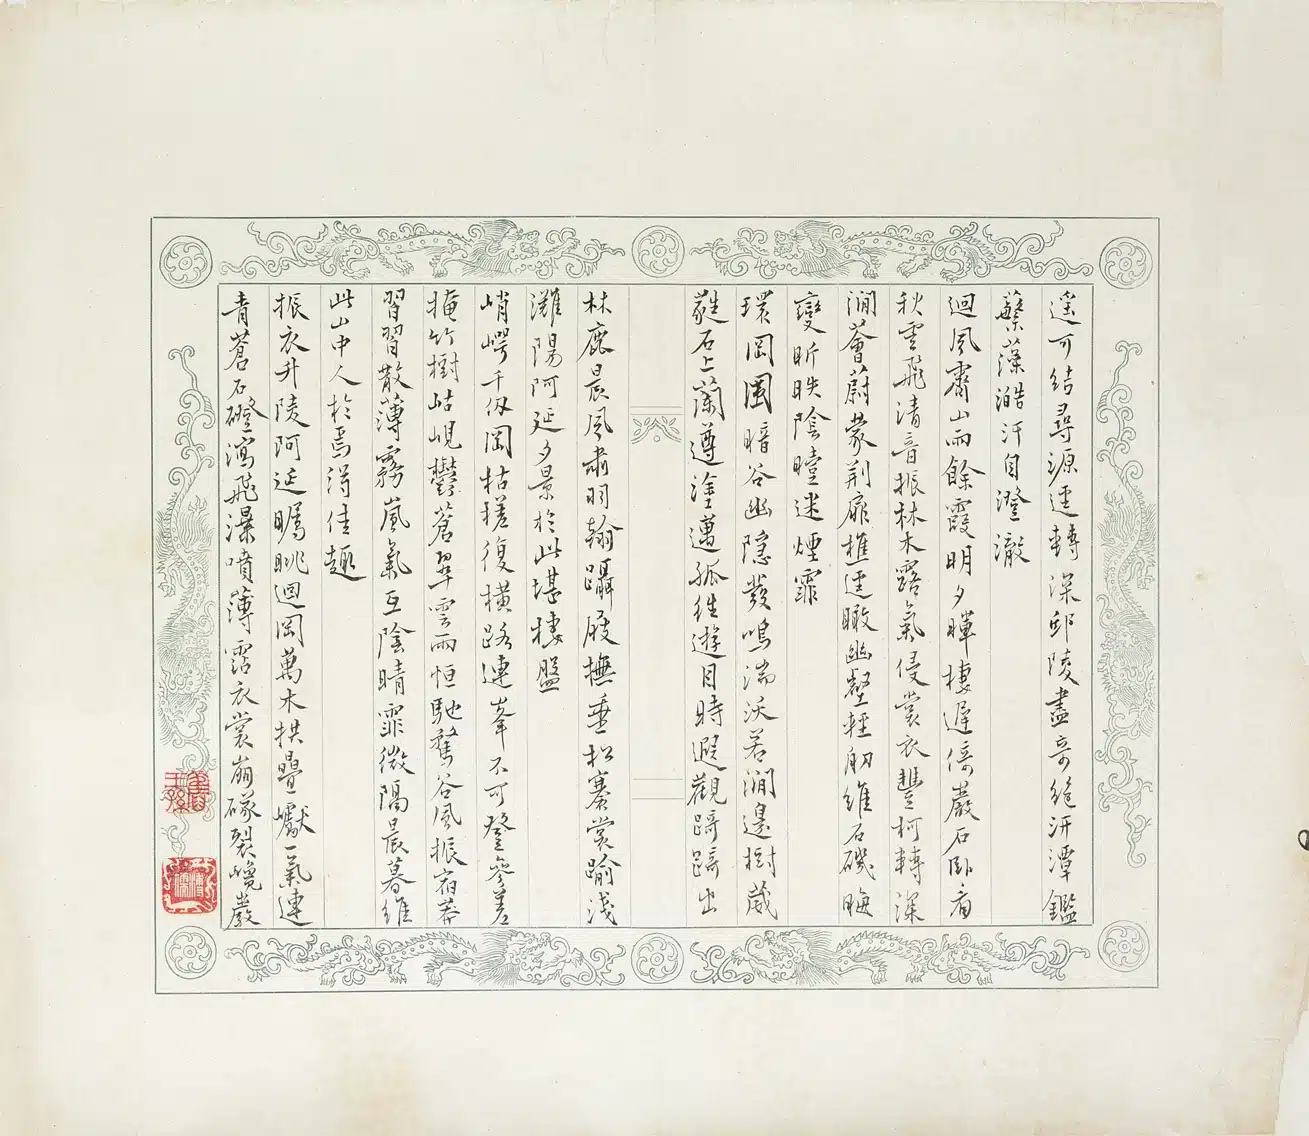 遙可結尋源逕轉深邨陵盡奇絶汧潭鑑
蘩藻澔汗自澄澈
迴風肅山雨餘霞明夕暉棲遲倚巖石臥看
秋雲飛清音振林木露氣侵裳衣豐柯轉深
澗薈蔚蒙荆扉樵逕瞰幽壑輕舠維石磯晦
變昕昳陰曀迷煙霏
環岡圍暗谷幽隱發鳴湍沃若澗邊樹葳
蕤石上蘭遵塗邁孤往遊目時遐觀躋躋出
林鹿晨風肅羽翰躡屐撫垂松搴裳踰淺
灘陽阿延夕景於此堪棲盤
峭崿千仞岡枯槎復橫路連峯不可登參差
掩竹樹岵峴鬱蒼翠雲雨恒馳騖谷風振宿莽
習習散薄霧嵐氣互陰晴霏微隔晨暮維
此山中人於焉得佳趣
振衣升陵阿延矚眺迴岡萬木拱疊巘一氣連
青蒼石磴瀉飛瀑噴薄霑衣裳崩硺裂巉巖